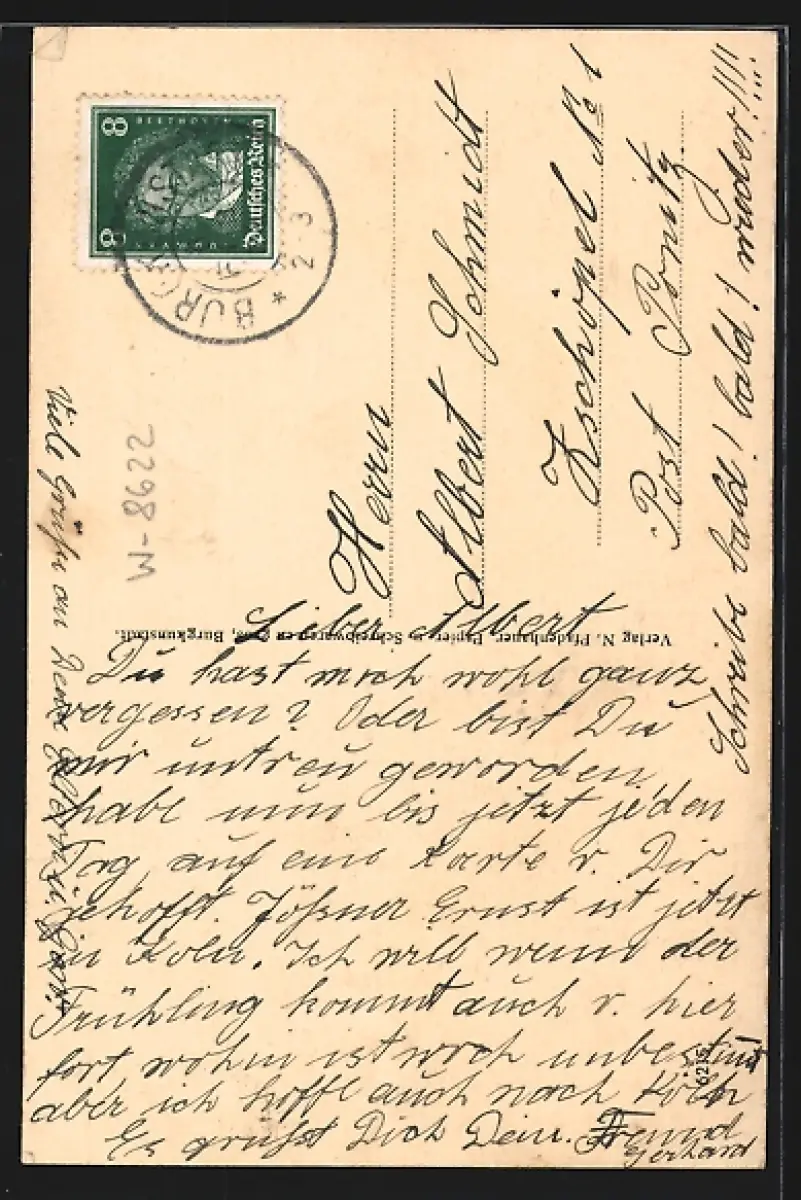 Lieber Albert
Du hast mich wohl ganz
vergessen? Oder bist Du
mir untreu geworden
habe nun bis jetzt jeden
Tag auf eine Karte v. Dir
gehofft. Jößner Ernst ist jetzt
in Köln. Ich will wenn der
Frühling kommt auch v. hier
fort wohin ist noch unbestimt
aber ich hoffe auch nach Köln
Es grüsst Dich Dein Freund
Gerhard
Viele Grüße an Deine Eltern u.
Schreibe bald! bald! bald! wieder!!!!
Herrn
Albert Schmidt
Zschöpel No 1
Post Ponitz
Verlag N. Pfadenhauer, Papier- u. Schreibwaren en gros, Burgkunstadt.
W-8622
8 BEETHOVEN
8
Deutsches Reich
BURG
* 2 3